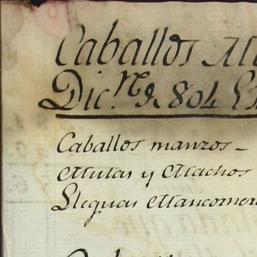 Caballos
Dic.re 804
Caballos manzos -
Mulas y Machos
Lleguas Mancorn